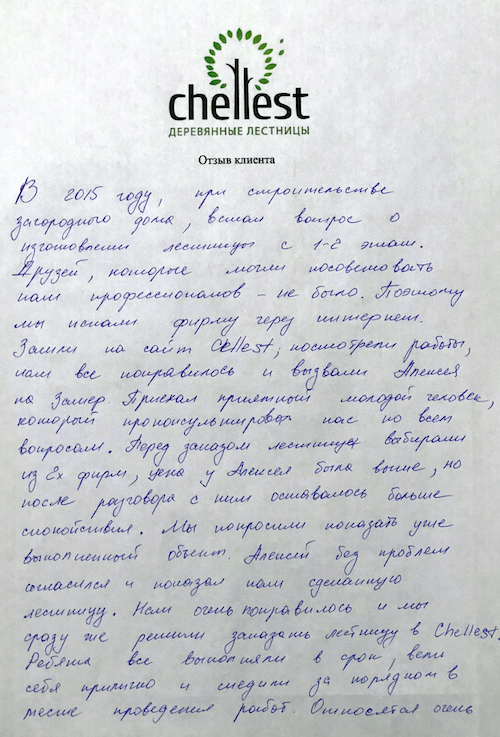 chellest
ДЕРЕВЯННЫЕ ЛЕСТНИЦЫ
Отзыв клиента
В 2015 году, при строительстве
загородного дома, встал вопрос о
изготовлении лестницы с 1-2 этаж.
Друзей, которые могли посоветовать
нам профессионалов – не было. Поэтому
мы искали фирму через интернет.
Зашли на сайт Chellest, посмотрели работы,
нам все понравилось и вызвали Алексея
на Замер. Приехал приятный молодой человек,
который проконсультировал нас по всем
вопросам. Перед заказом лестницу выбирали
из 2х фирм, цена у Алексея была выше, но
после разговора с ним оставалось больше
спокойствия. Мы попросили показать уже
выполненный объект. Алексей без проблем
согласился и показал нам сделанную
лестницу. Нам очень понравилось и мы
сразу же решили заказать лестницу в Chellest.
Ребята все выполняли в срок, вели
себя прилично и следили за порядком в
месте проведения работ. Относятся очень